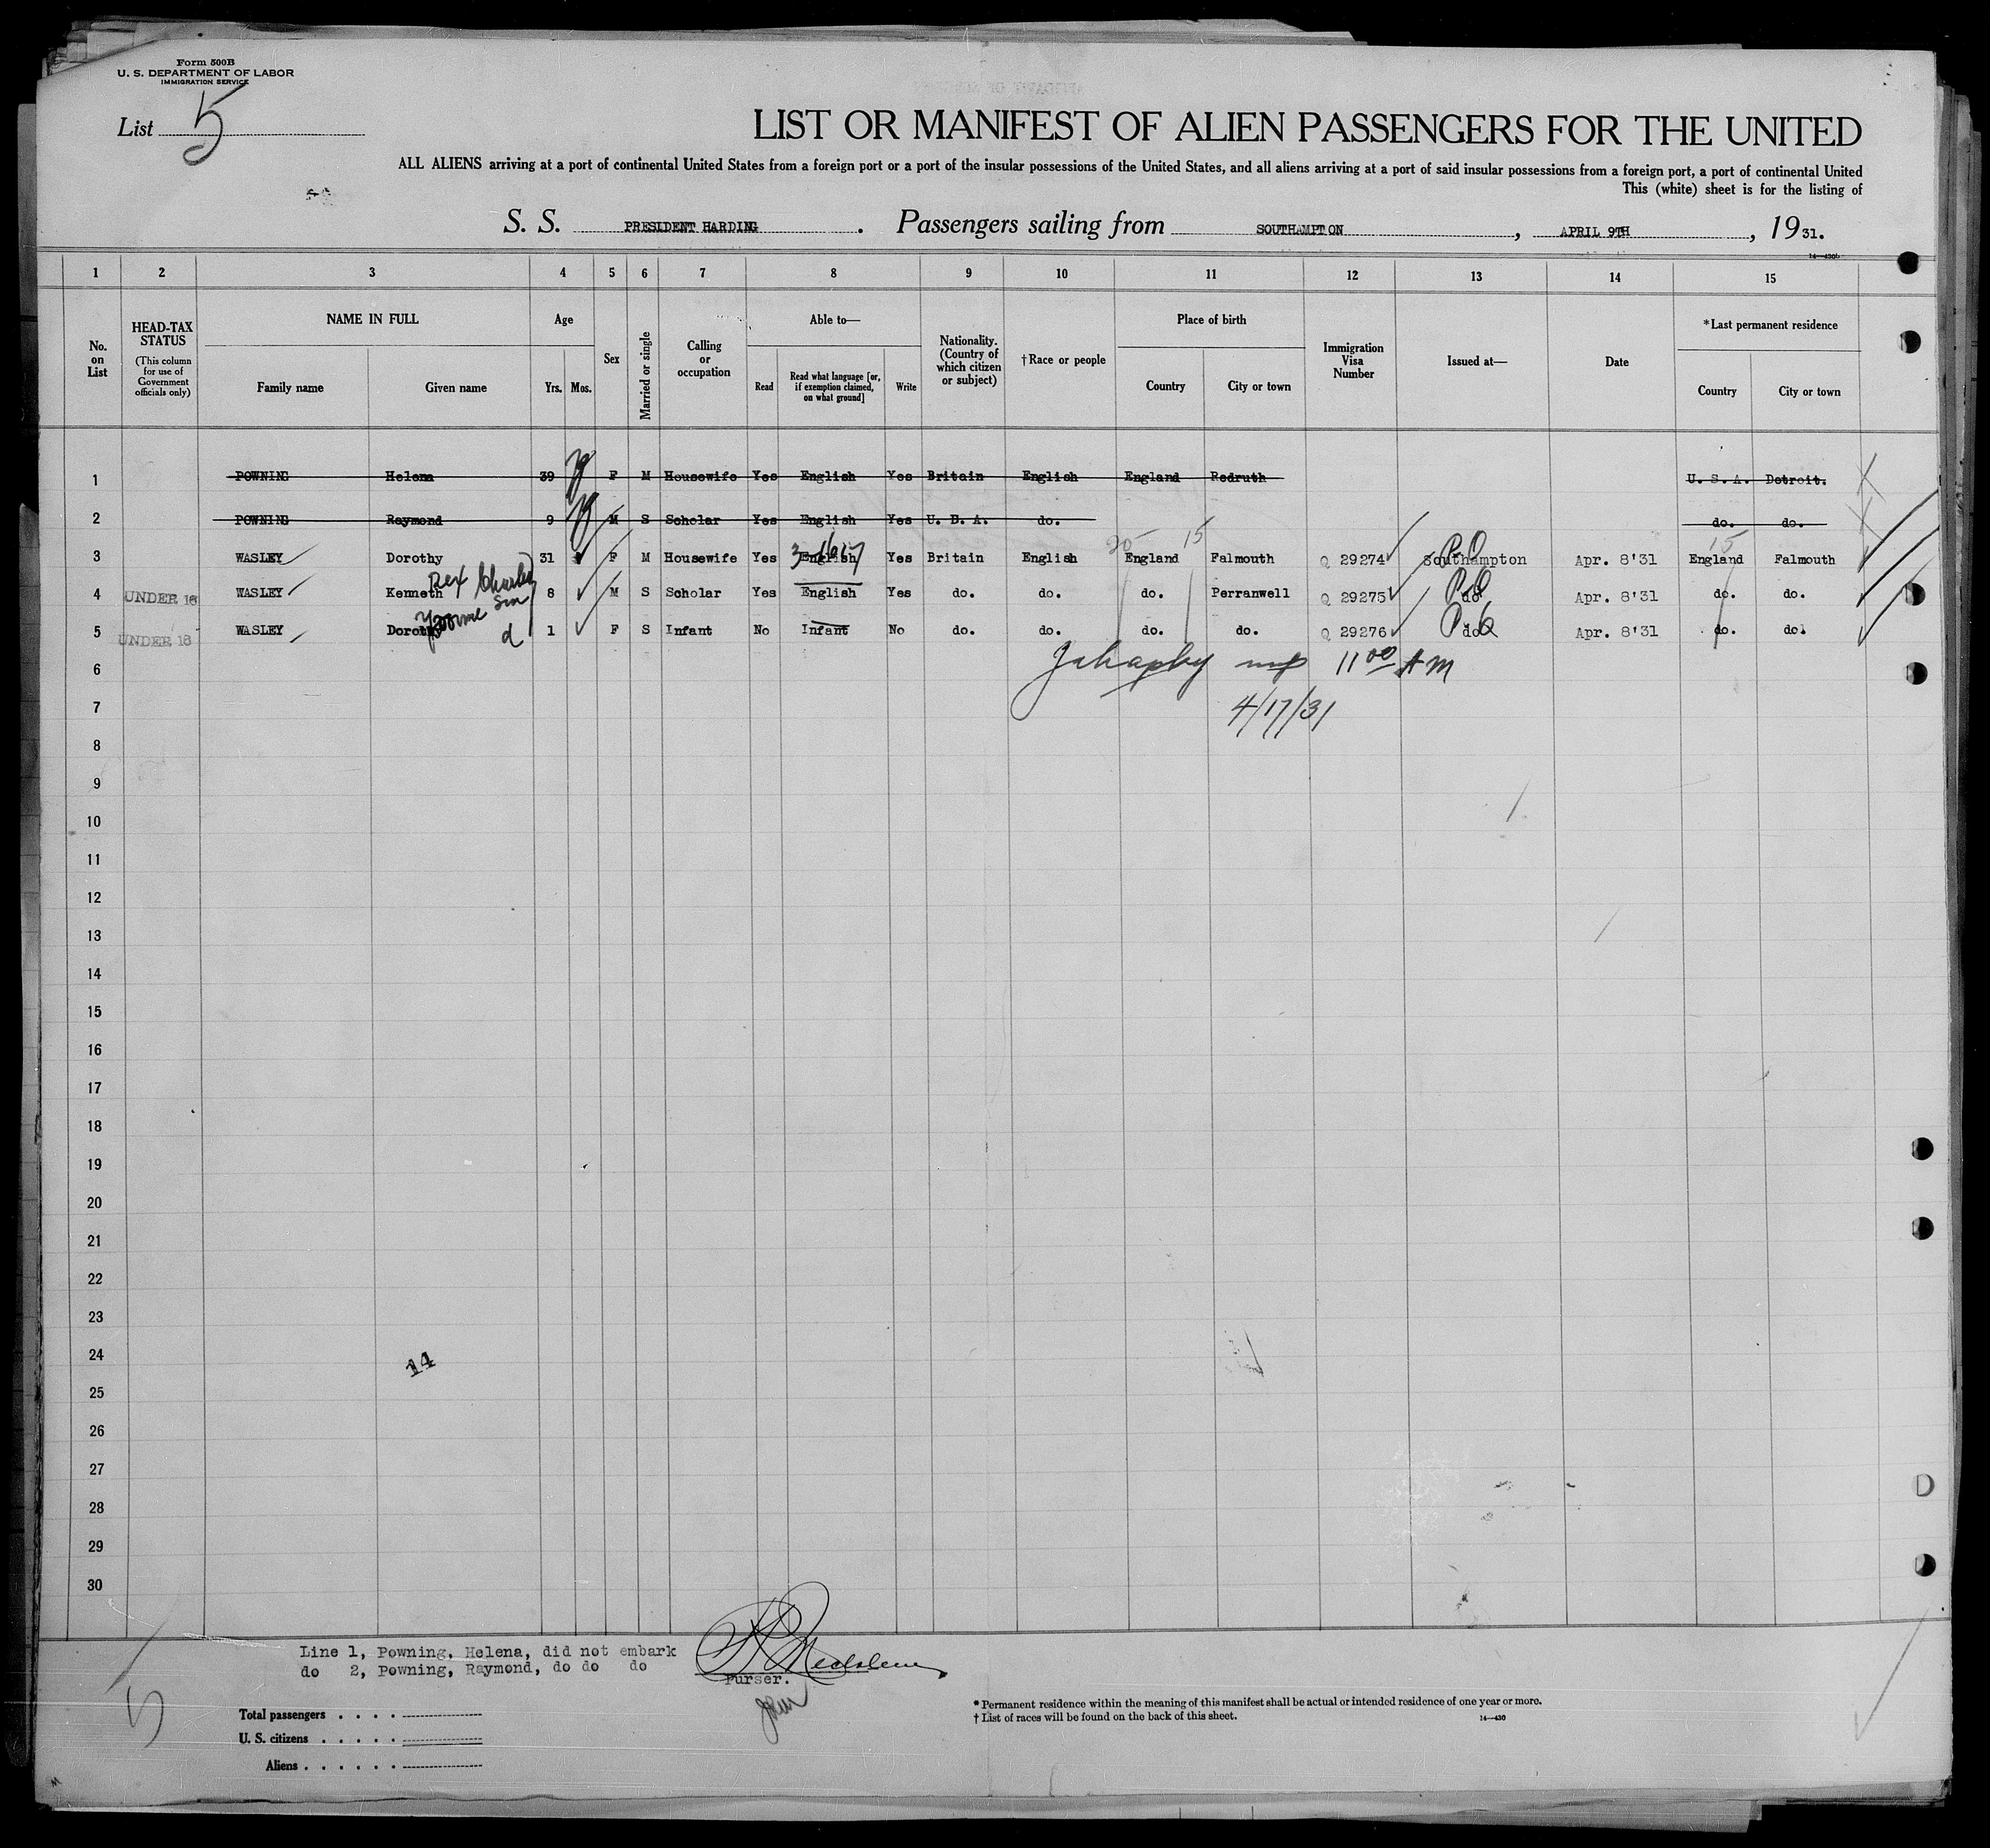 Form 500B
U. S. DEPARTMENT OF LABOR
IMMIGRATION SERVICE
List 5
LIST OR MANIFEST OF ALIEN PASSENGERS FOR THE UNITED
ALL ALIENS arriving at a port of continental United States from a foreign port or a port of the insular possessions of the United States, and all aliens arriving at a port of said insular possessions from a foreign port, a port of continental United
This (white) sheet is for the listing of
S. S. PRESIDENT HARDING. Passengers sailing from SOUTHAMPTON, APRIL 9TH, 1931.
14—430b
1 2 3 4 5 6 7 8 9 10 11 12 13 14 15
No. on List
HEAD-TAX STATUS (This column for use of Government officials only)
NAME IN FULL
Family name Given name
Age
Yrs. Mos.
Sex
Married or single
Calling or occupation
Able to—
Read Read what language [or, if exemption claimed, on what ground] Write
Nationality. (Country of which citizen or subject)
†Race or people
Place of birth
Country City or town
Immigration Visa Number
Issued at—
Date
*Last permanent residence
Country City or town
1 POWNING Helena 39 F M Housewife Yes English Yes Britain English England Redruth U. S. A. Detroit.
2 POWNING Raymond 9 M S Scholar Yes English Yes U. S. A. do. do. do.
20 15 15
3 WASLEY Dorothy 31 F M Housewife Yes English Yes Britain English England Falmouth Q 29274 Southampton Apr. 8'31 England Falmouth
Rex Charles
4 UNDER 16 WASLEY Kenneth son 8 M S Scholar Yes English Yes do. do. do. Perranwell Q 29275 do Apr. 8'31 do. do.
Yvonne
5 UNDER 16 WASLEY Dorothy d 1 F S Infant No Infant No do. do. do. do. Q 29276 do Apr. 8'31 do. do.
6 11 00 AM
7 4/17/31
8
9
10
11
12
13
14
15
16
17
18
19
20
21
22
23
24
14
25
26
27
28
29
30
Line 1, Powning, Helena, did not embark
do 2, Powning, Raymond, do do do
Purser.
5
Total passengers
U. S. citizens
Aliens
* Permanent residence within the meaning of this manifest shall be actual or intended residence of one year or more.
† List of races will be found on the back of this sheet.
14—430